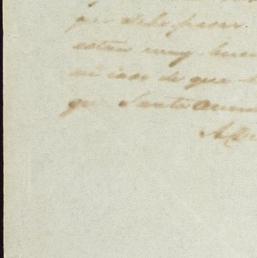 que debe pasar
estan muy buen
ni caso de que
qe Santa Anna